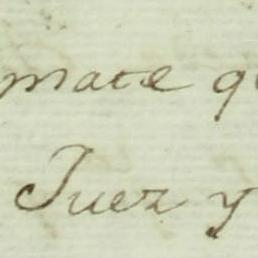 mate q
Juez y